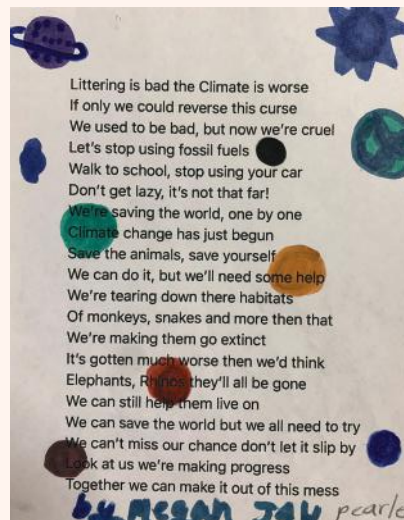 Littering is bad the Climate is worse
If only we could reverse this curse
We used to be bad, but now we're cruel
Let's stop using fossil fuels
Walk to school, stop using your car
Don't get lazy, it's not that far!
We're saving the world, one by one
Climate change has just begun
Save the animals, save yourself
We can do it, but we'll need some help
We're tearing down there habitats
Of monkeys, snakes and more then that
We're making them go extinct
It's gotten much worse then we'd think
Elephants, Rhinos they'll all be gone
We can still help them live on
We can save the world but we all need to try
We can't miss our chance don't let it slip by
Look at us we're making progress
Together we can make it out of this mess
by Megan Jay